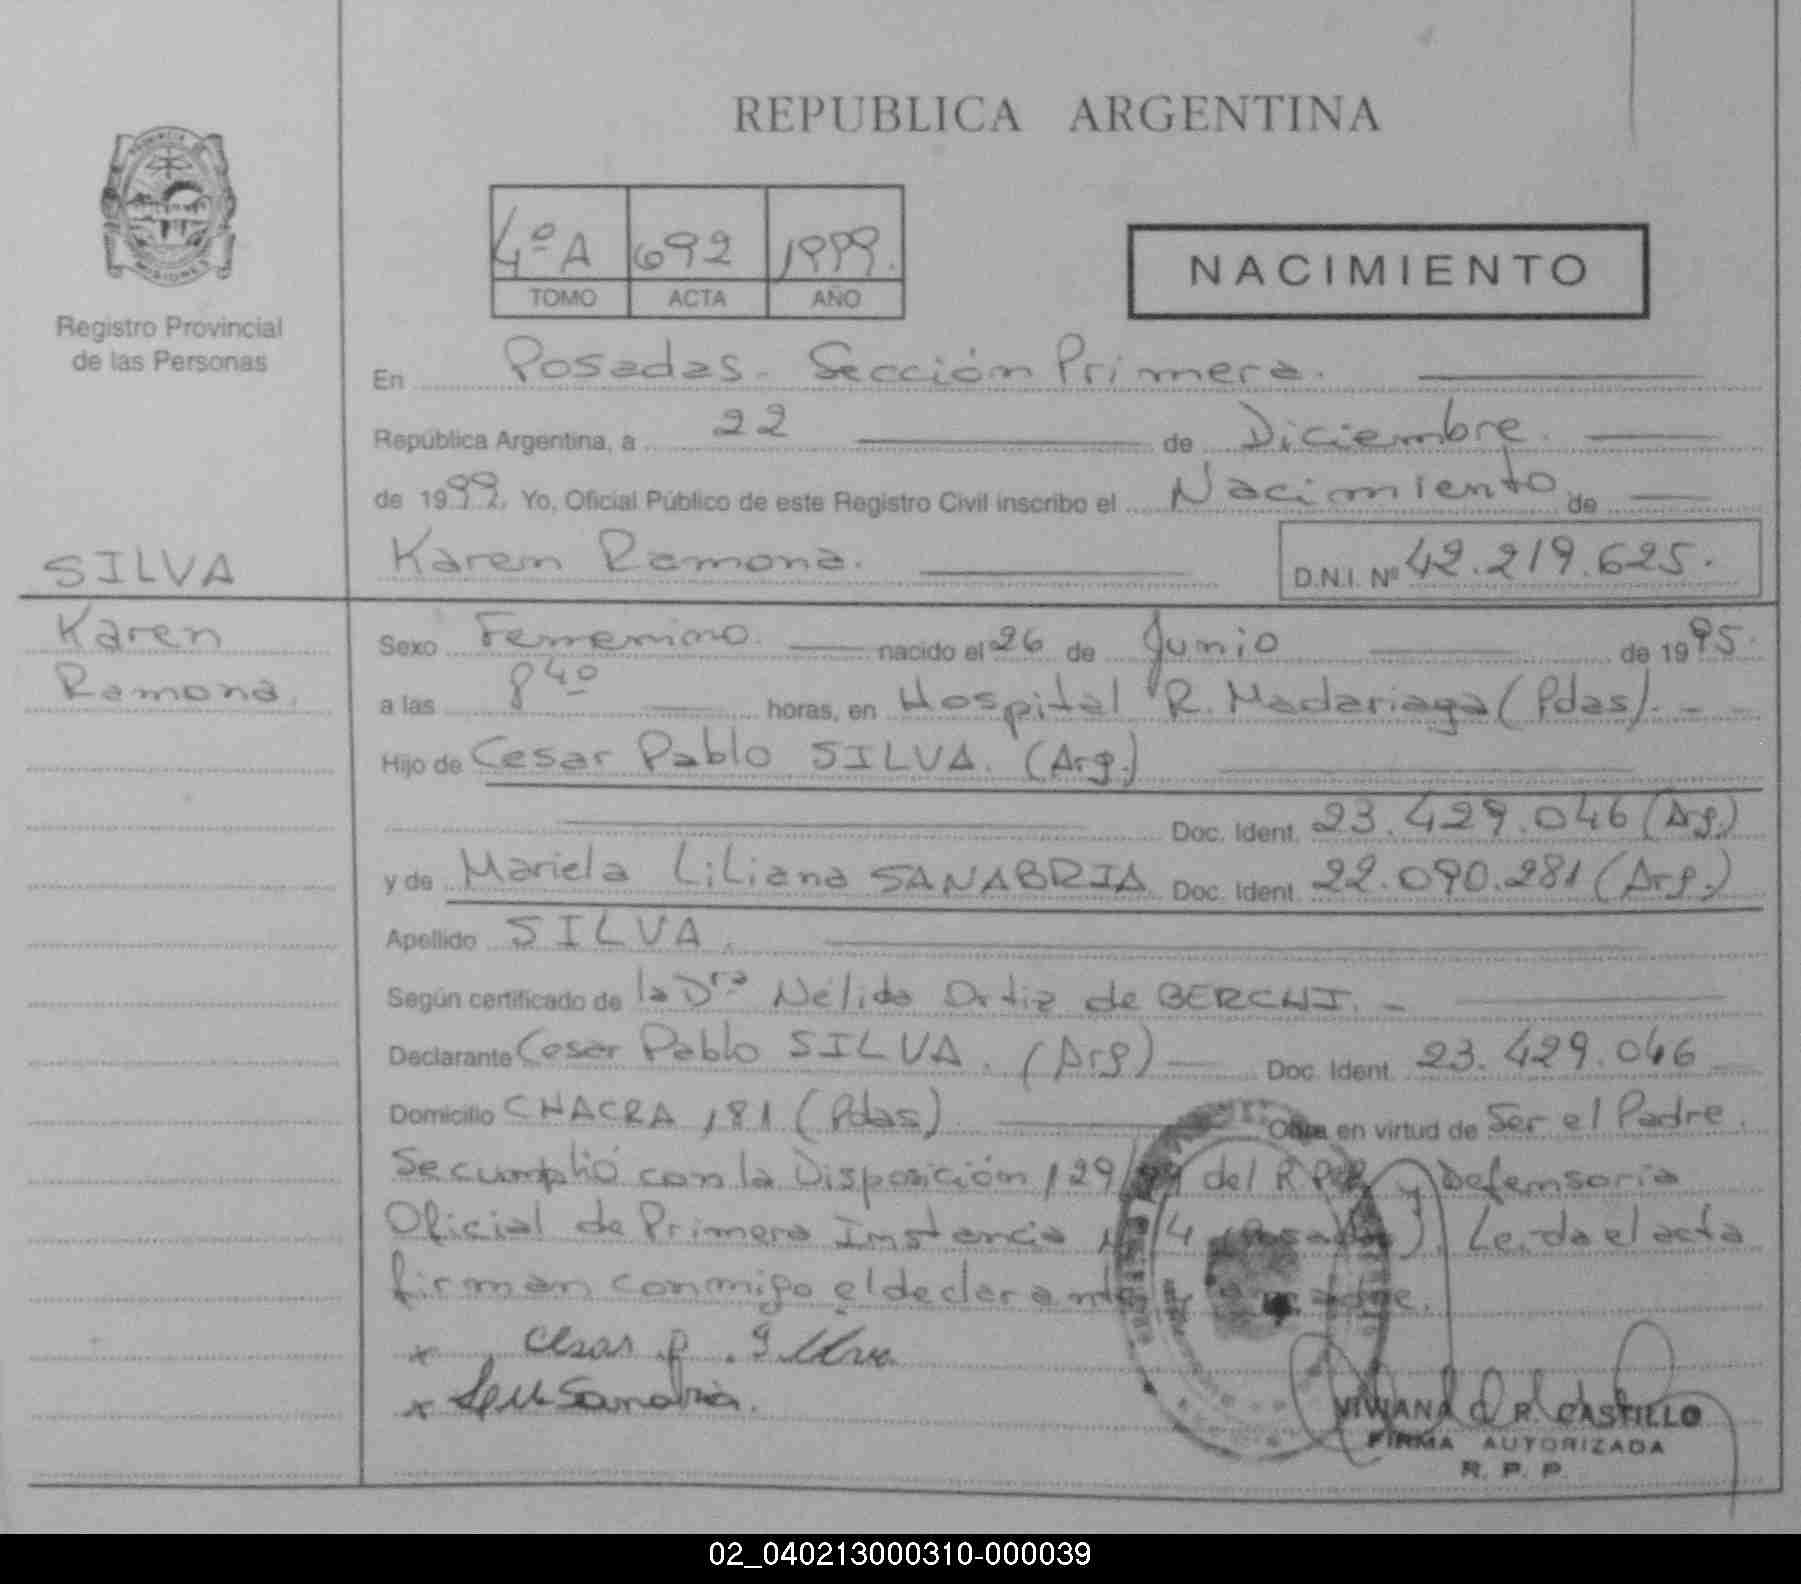 REPUBLICA ARGENTINA
PROVINCIA
MISIONES
Registro Provincial
de las Personas
4º A 692 1999.
TOMO ACTA AÑO
NACIMIENTO
En Posadas. Sección Primera.
República Argentina, a 22 de Diciembre.
de 1999. Yo, Oficial Público de este Registro Civil inscribo el Nacimiento de
SILVA
Karen Ramona. D.N.I. Nº 42.219.625.
Karen
Ramona.
Sexo Femenino. nacido el 26 de Junio de 1995.
a las 8 40 horas, en Hospital R. Madariaga (Pdas). - -
Hijo de Cesar Pablo SILVA. (Arg.)
Doc. Ident. 23.429.046 (Arg.)
y de Mariela Liliana SANABRIA Doc. Ident. 22.090.281 (Arg.)
Apellido SILVA.
Según certificado de la Dra Nélida Ortiz de BERCHI. -
Declarante Cesar Pablo SILVA. (Arg) Doc. Ident. 23.429.046
Domicilio CHACRA 181 (Pdas) Obra en virtud de Ser el Padre.
Se cumplió con la Disposición 129/99 del R.P.P. y Defensoria
Oficial de Primera Instancia Nº 4 (Posadas). Leida el acta
firman conmigo el declarante y la madre.
x Cesar p. Silva
x Sanabria.
VIVIANA C. R. CASTILLO
FIRMA AUTORIZADA
R. P. P.
02_040213000310-000039